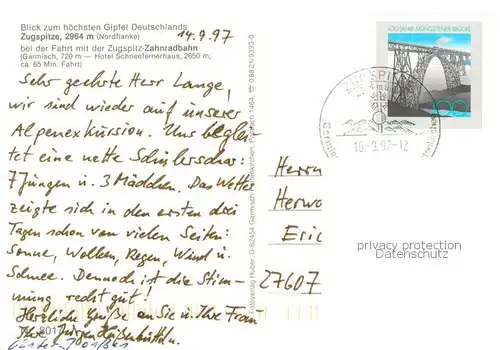 Blick zum höchsten Gipfel Deutschlands
Zugspitze, 2964 m (Nordflanke)
14.9.97
bei der Fahrt mit der Zugspitz-Zahnradbahn
(Garmisch, 720 m — Hotel Schneefernerhaus, 2650 m;
ca. 65 Min. Fahrt)
Sehr geehrte Herr Lange,
wir sind wieder auf unserer
Alpenexkursion. Uns beglei-
tet eine nette Schülerschar:
7 Jungen u. 3 Mädchen. Das Wetter
zeigte sich in den ersten drei
Tagen schon von vielen Seiten:
Sonne, Wolken, Regen, Wind u.
Schnee. Dennoch ist die Stim-
mung recht gut!
Herzliche Grüße an Sie u. Ihre Frau
Ihre
8017
100 JAHRE MÜNGSTENER BRÜCKE
100
ZUGSPITZE
16.-9.97-12
Herrn
Eric
27607
privacy protection
Datenschutz